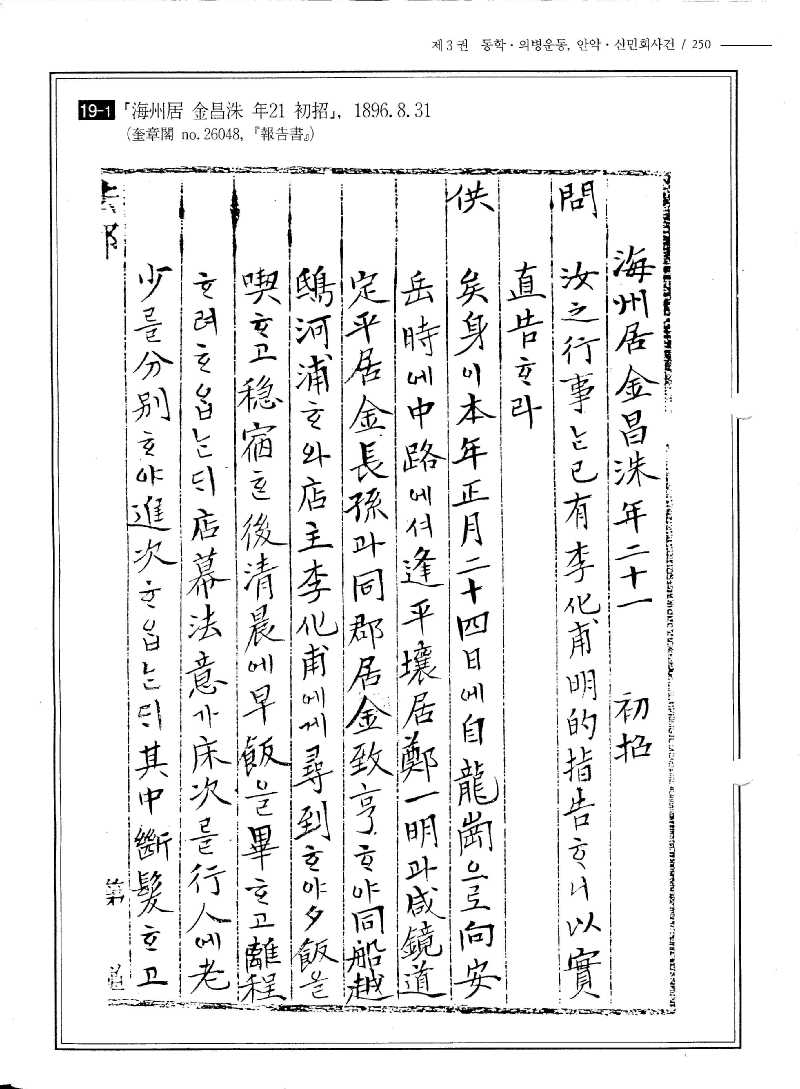 제3권 동학·의병운동, 안악·신민회사건 / 250
19-1 「海州居 金昌洙 年21 初招」, 1896. 8. 31
(奎章閣 no. 26048, 『報告書』)
海州居金昌洙年二十一 初招
問 汝之行事는已有李化甫明的指告하니以實
直告하라
供 矣身이本年正月二十四日에自龍岡으로向安
岳時에中路에셔逢平壤居鄭一明과咸鏡道
定平居金長孫과同郡居金致亨하야同船越
鴟河浦하와店主李化甫에게尋到하야夕飯을
喫하고穩宿한後淸晨에早飯을畢하고離程
하려하옵는듸店幕法意가床次를行人에老
少를分別하야進次하옵는듸其中斷髮하고